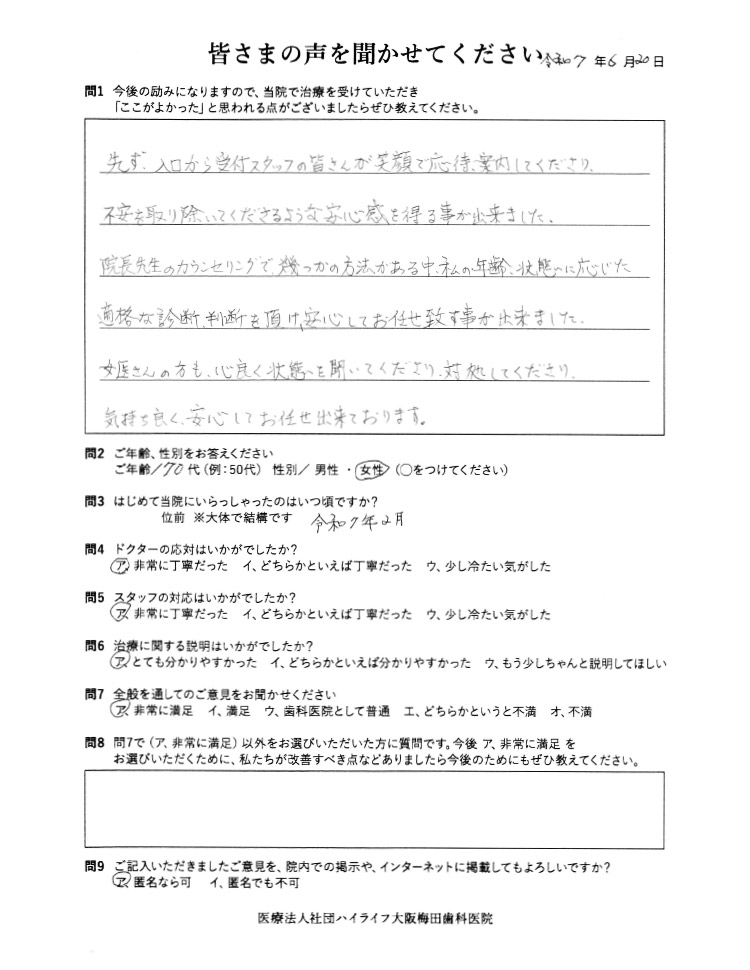 皆さまの声を聞かせてください 令和7年6月20日
問1 今後の励みになりますので、当院で治療を受けていただき
「ここがよかった」と思われる点がございましたらぜひ教えてください。
先ず、入口から受付スタッフの皆さんが笑顔で応待、案内してくださり、
不安を取り除いてくださるような安心感を得る事が出来ました。
院長先生のカウンセリングで、幾つかの方法がある中、私の年齢、状態に応じた
適格な診断、判断を頂け、安心してお任せ致す事が出来ました。
女医さんの方も、心良く状態を聞いてくださり、対処してくださり、
気持ち良く、安心してお任せ出来ております。
問2 ご年齢、性別をお答えください
ご年齢/70代(例:50代) 性別/ 男性 ・ 女性 (○をつけてください)
問3 はじめて当院にいらっしゃったのはいつ頃ですか?
位前 ※大体で結構です 令和7年2月
問4 ドクターの応対はいかがでしたか?
ア、非常に丁寧だった イ、どちらかといえば丁寧だった ウ、少し冷たい気がした
問5 スタッフの対応はいかがでしたか?
ア、非常に丁寧だった イ、どちらかといえば丁寧だった ウ、少し冷たい気がした
問6 治療に関する説明はいかがでしたか?
ア、とても分かりやすかった イ、どちらかといえば分かりやすかった ウ、もう少しちゃんと説明してほしい
問7 全般を通してのご意見をお聞かせください
ア、非常に満足 イ、満足 ウ、歯科医院として普通 エ、どちらかというと不満 オ、不満
問8 問7で(ア、非常に満足)以外をお選びいただいた方に質問です。今後 ア、非常に満足 を
お選びいただくために、私たちが改善すべき点などありましたら今後のためにもぜひ教えてください。
問9 ご記入いただきましたご意見を、院内での掲示や、インターネットに掲載してもよろしいですか?
ア、匿名なら可 イ、匿名でも不可
医療法人社団ハイライフ大阪梅田歯科医院